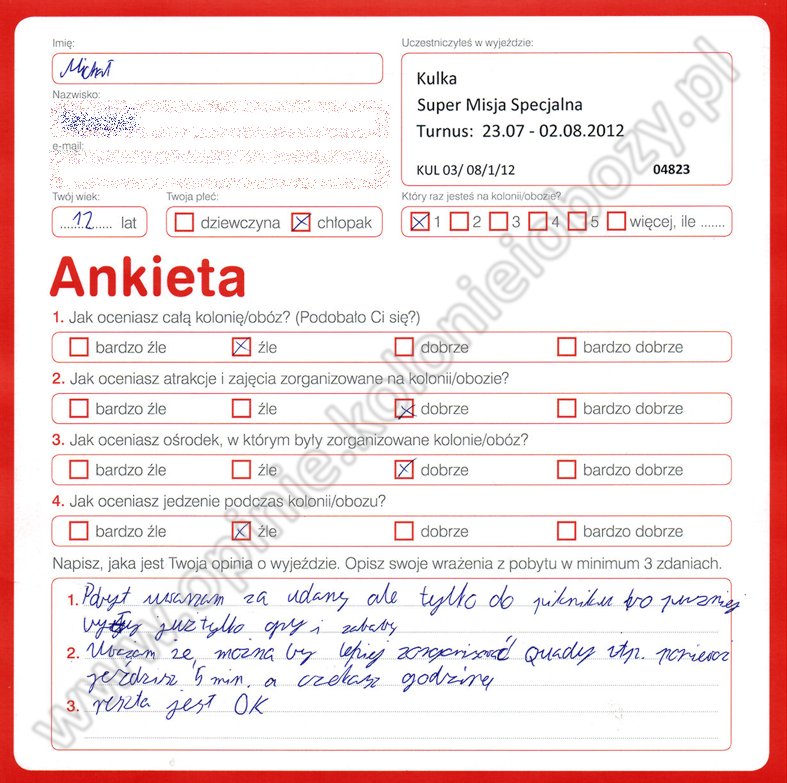 Imię:
Michał
Nazwisko:
e-mail:
Twój wiek:
12 lat
Twoja płeć:
dziewczyna chłopak
Uczestniczyłeś w wyjeździe:
Kulka
Super Misja Specjalna
Turnus: 23.07 - 02.08.2012
KUL 03/ 08/1/12 04823
Który raz jesteś na kolonii/obozie?
1 2 3 4 5 więcej, ile .......
Ankieta
1. Jak oceniasz całą kolonię/obóz? (Podobało Ci się?)
bardzo źle źle dobrze bardzo dobrze
2. Jak oceniasz atrakcje i zajęcia zorganizowane na kolonii/obozie?
bardzo źle źle dobrze bardzo dobrze
3. Jak oceniasz ośrodek, w którym były zorganizowane kolonie/obóz?
bardzo źle źle dobrze bardzo dobrze
4. Jak oceniasz jedzenie podczas kolonii/obozu?
bardzo źle źle dobrze bardzo dobrze
Napisz, jaka jest Twoja opinia o wyjeździe. Opisz swoje wrażenia z pobytu w minimum 3 zdaniach.
1. Pobyt uważam za udany ale tylko do pikniku bo puzniej
były już tylko gry i zabawy
2. Uważam że, można by lepiej zorganizować quady itp. ponieważ
jeździsz 5 min. a czekasz godzinę
3. reszta jest OK
www.opinie.kolonieiobozy.pl